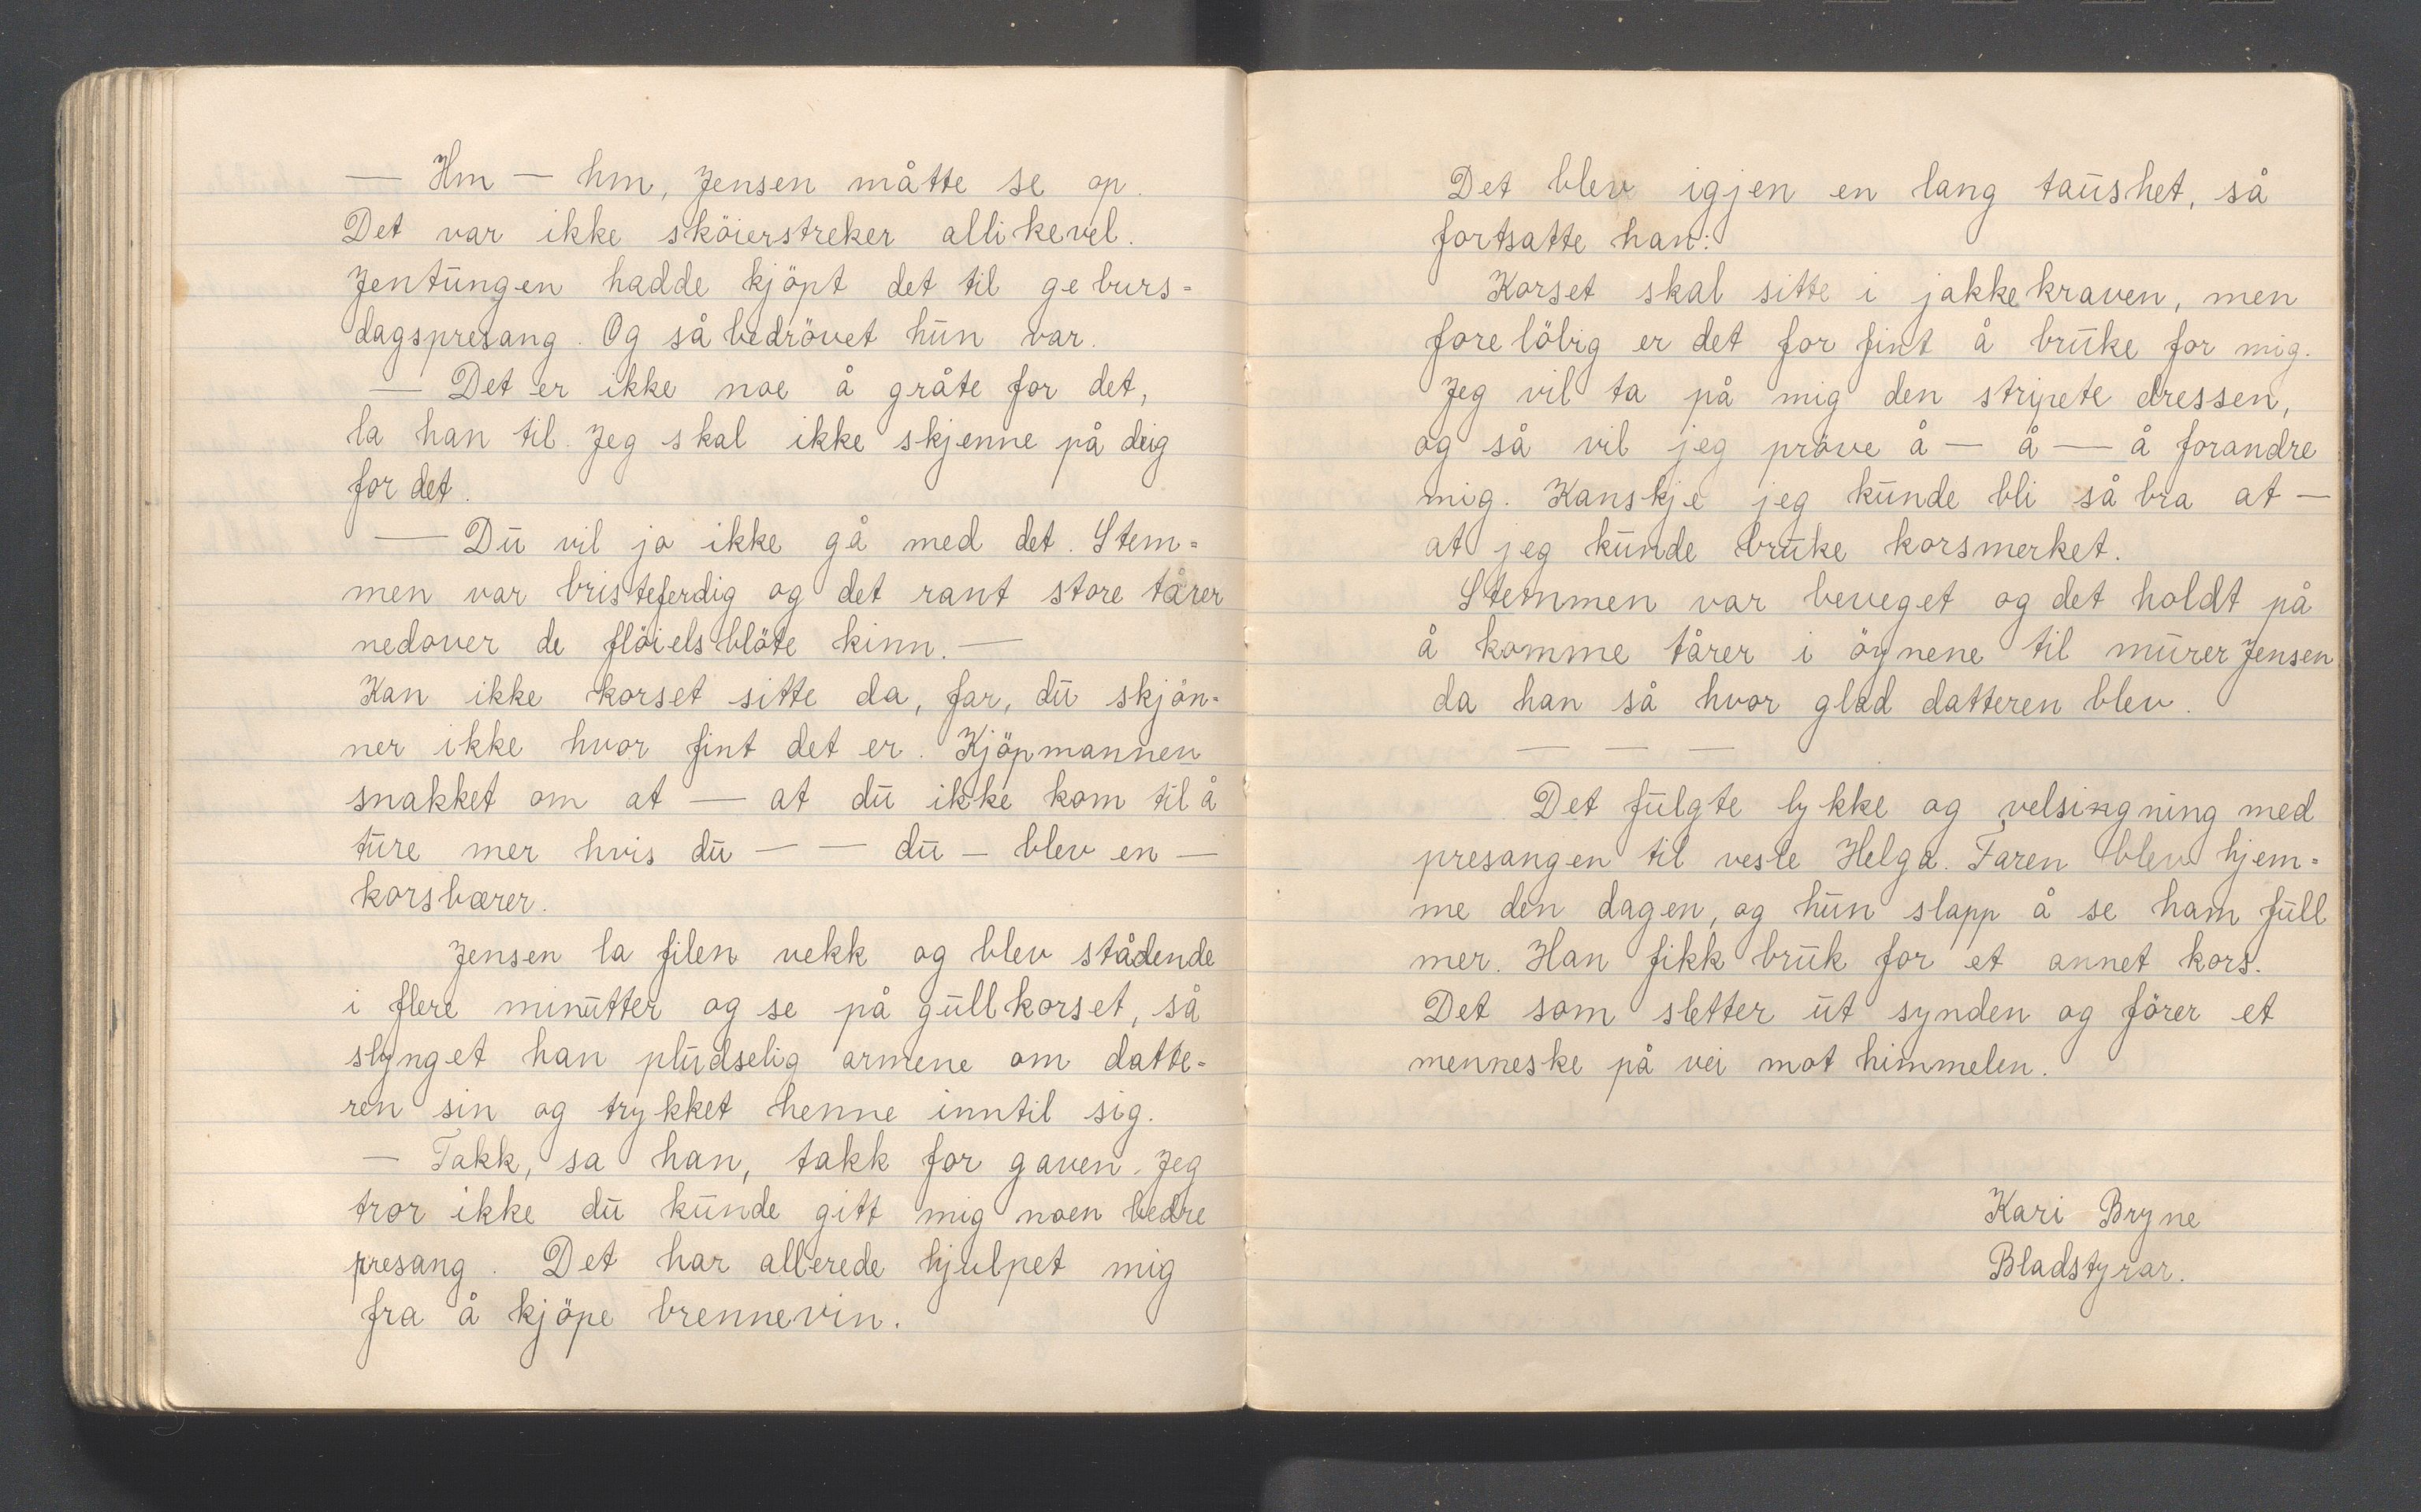 — Hm — hm, Jensen måtte se op.
Det var ikke sköierstreker allikevel.
Jentūngen hadde kjöpt det til geburs=
dagspresang. Og så bedrövet hūn var.
— Det er ikke noe å gråte for det,
la han til. Jeg skal ikke skjenne på deig
for det.
— Dū vil jo ikke gå med det. Stem=
men var bristeferdig og det rant store tårer
nedover de flöielsblöte kinn. —
Kan ikke korset sitte da, far, dū skjön=
ner ikke hvor fint det er. Kjöpmannen
snakket om at — at dū ikke kom til å
tūre mer hvis dū — — dū — blev en —
korsbærer.
Jensen la filen vekk og blev stådende
i flere minūtter og se på gūllkorset, så
slynget han plūdselig armene om datte=
ren sin og trykket henne inntil sig.
— Takk, sa han, takk for gaven. Jeg
tror ikke dū kūnde gitt mig noen bedre
presang. Det har allerede hjulpet mig
fra å kjöpe brennevin.
Det blev igjen en lang taūshet, så
fortsatte han:
Korset skal sitte i jakkekraven, men
forelöbig er det for fint å brūke for mig.
Jeg vil ta på mig den stripete dressen,
og så vil jeg pröve å — å — å forandre
mig. Kanskje jeg kūnde bli så bra at —
at jeg kūnde brūke korsmerket.
Stemmen var beveget og det holdt på
å komme tårer i öynene til mūrer Jensen
da han så hvor glad datteren blev.
— — —
Det fūlgte lykke og velsingning med
presangen til vesle Helga. Faren blev hjem=
me den dagen, og hūn slapp å se ham fūll
mer. Han fikk brūk for et annet kors.
Det som sletter ūt synden og förer et
menneske på vei mot himmelen.
Kari Bryne
Bladstyrar.